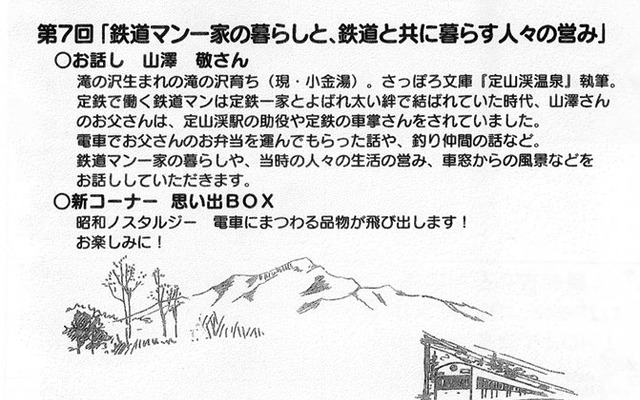 第7回「鉄道マン一家の暮らしと、鉄道と共に暮らす人々の営み」
○お話し 山澤 敬さん
滝の沢生まれの滝の沢育ち（現・小金湯）。さっぽろ文庫『定山渓温泉』執筆。
定鉄で働く鉄道マンは定鉄一家とよばれ太い絆で結ばれていた時代、山澤さん
のお父さんは、定山渓駅の助役や定鉄の車掌さんをされていました。
電車でお父さんのお弁当を運んでもらった話や、釣り仲間の話など。
鉄道マン一家の暮らしや、当時の人々の生活の営み、車窓からの風景などを
お話ししていただきます。
○新コーナー 思い出BOX
昭和ノスタルジー 電車にまつわる品物が飛び出します！
お楽しみに！